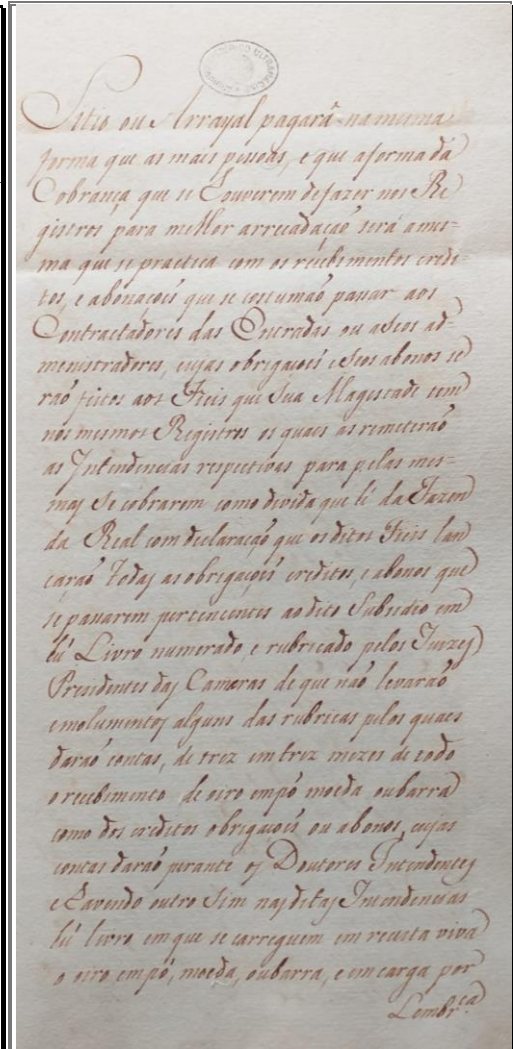 Sitio ou Arrayal pagará na mesma
forma que as mais pessoas, e que a forma da
Cobrança que se houverem de fazer nos Re
gistros para melhor arrecadação será a mes=
ma que se practica com os recebimentos credi=
tos, e abonaçoîs que se costumaõ passar aos
Contractadores das Entradas ou a seos ad=
menistradores, cujas obrigaçoîs e seos abonos se
raõ feitos aos Fieis que Sua Magestade tem
nos mesmos Registros os quaes as remeteraõ
as Intendencias respectivas para pelas mes=
mas se cobrarem como divida que hé da Fazen
da Real com declaraçaõ que os ditos Fieis lan
çaraõ todas as obrigaçoîs creditos, e abonos que
se passarem pertencentes ao dito Subsidio em
hû Livro numerado, e rubricado pelos Juizes
Presidentes das Cameras de que naõ levaraõ
emolumentos alguns das rubricas pelos quaes
daraõ contas, de trez em trez mezes de todo
o recebimento de oiro em pô moeda ou barra
como dos creditos obrigaçoîs ou abonos, cujas
contas daraõ perante os Doutores Intendentes
e havendo outro sim nas ditas Intendencias
hû livro em que se carreguem em receita viva
o oiro em pô, moeda, ou barra, e em carga por
Lembr.ca